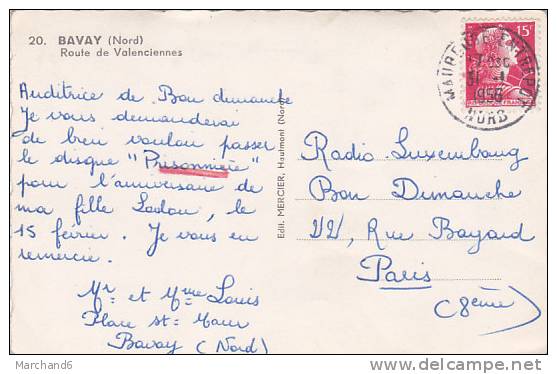 20. BAVAY (Nord)
Route de Valenciennes
Auditrice de Bon dimanche
Je vous demanderai
de bien vouloir passer
le disque "Prisonnière"
pour l'anniversaire de
ma fille Ladou, le
15 février. Je vous en
remercie.
Mr et Mme Louis
Place St-Maur
Bavay (Nord)
Edit. MERCIER, Hautmont (Nord)
15F
MAUBEUGE ENTREPOT
31 -1
1956
NORD
Radio Luxembourg
Bon Dimanche
22, Rue Bayard
Paris
(8ème)
Marchand6
©delcampe.net